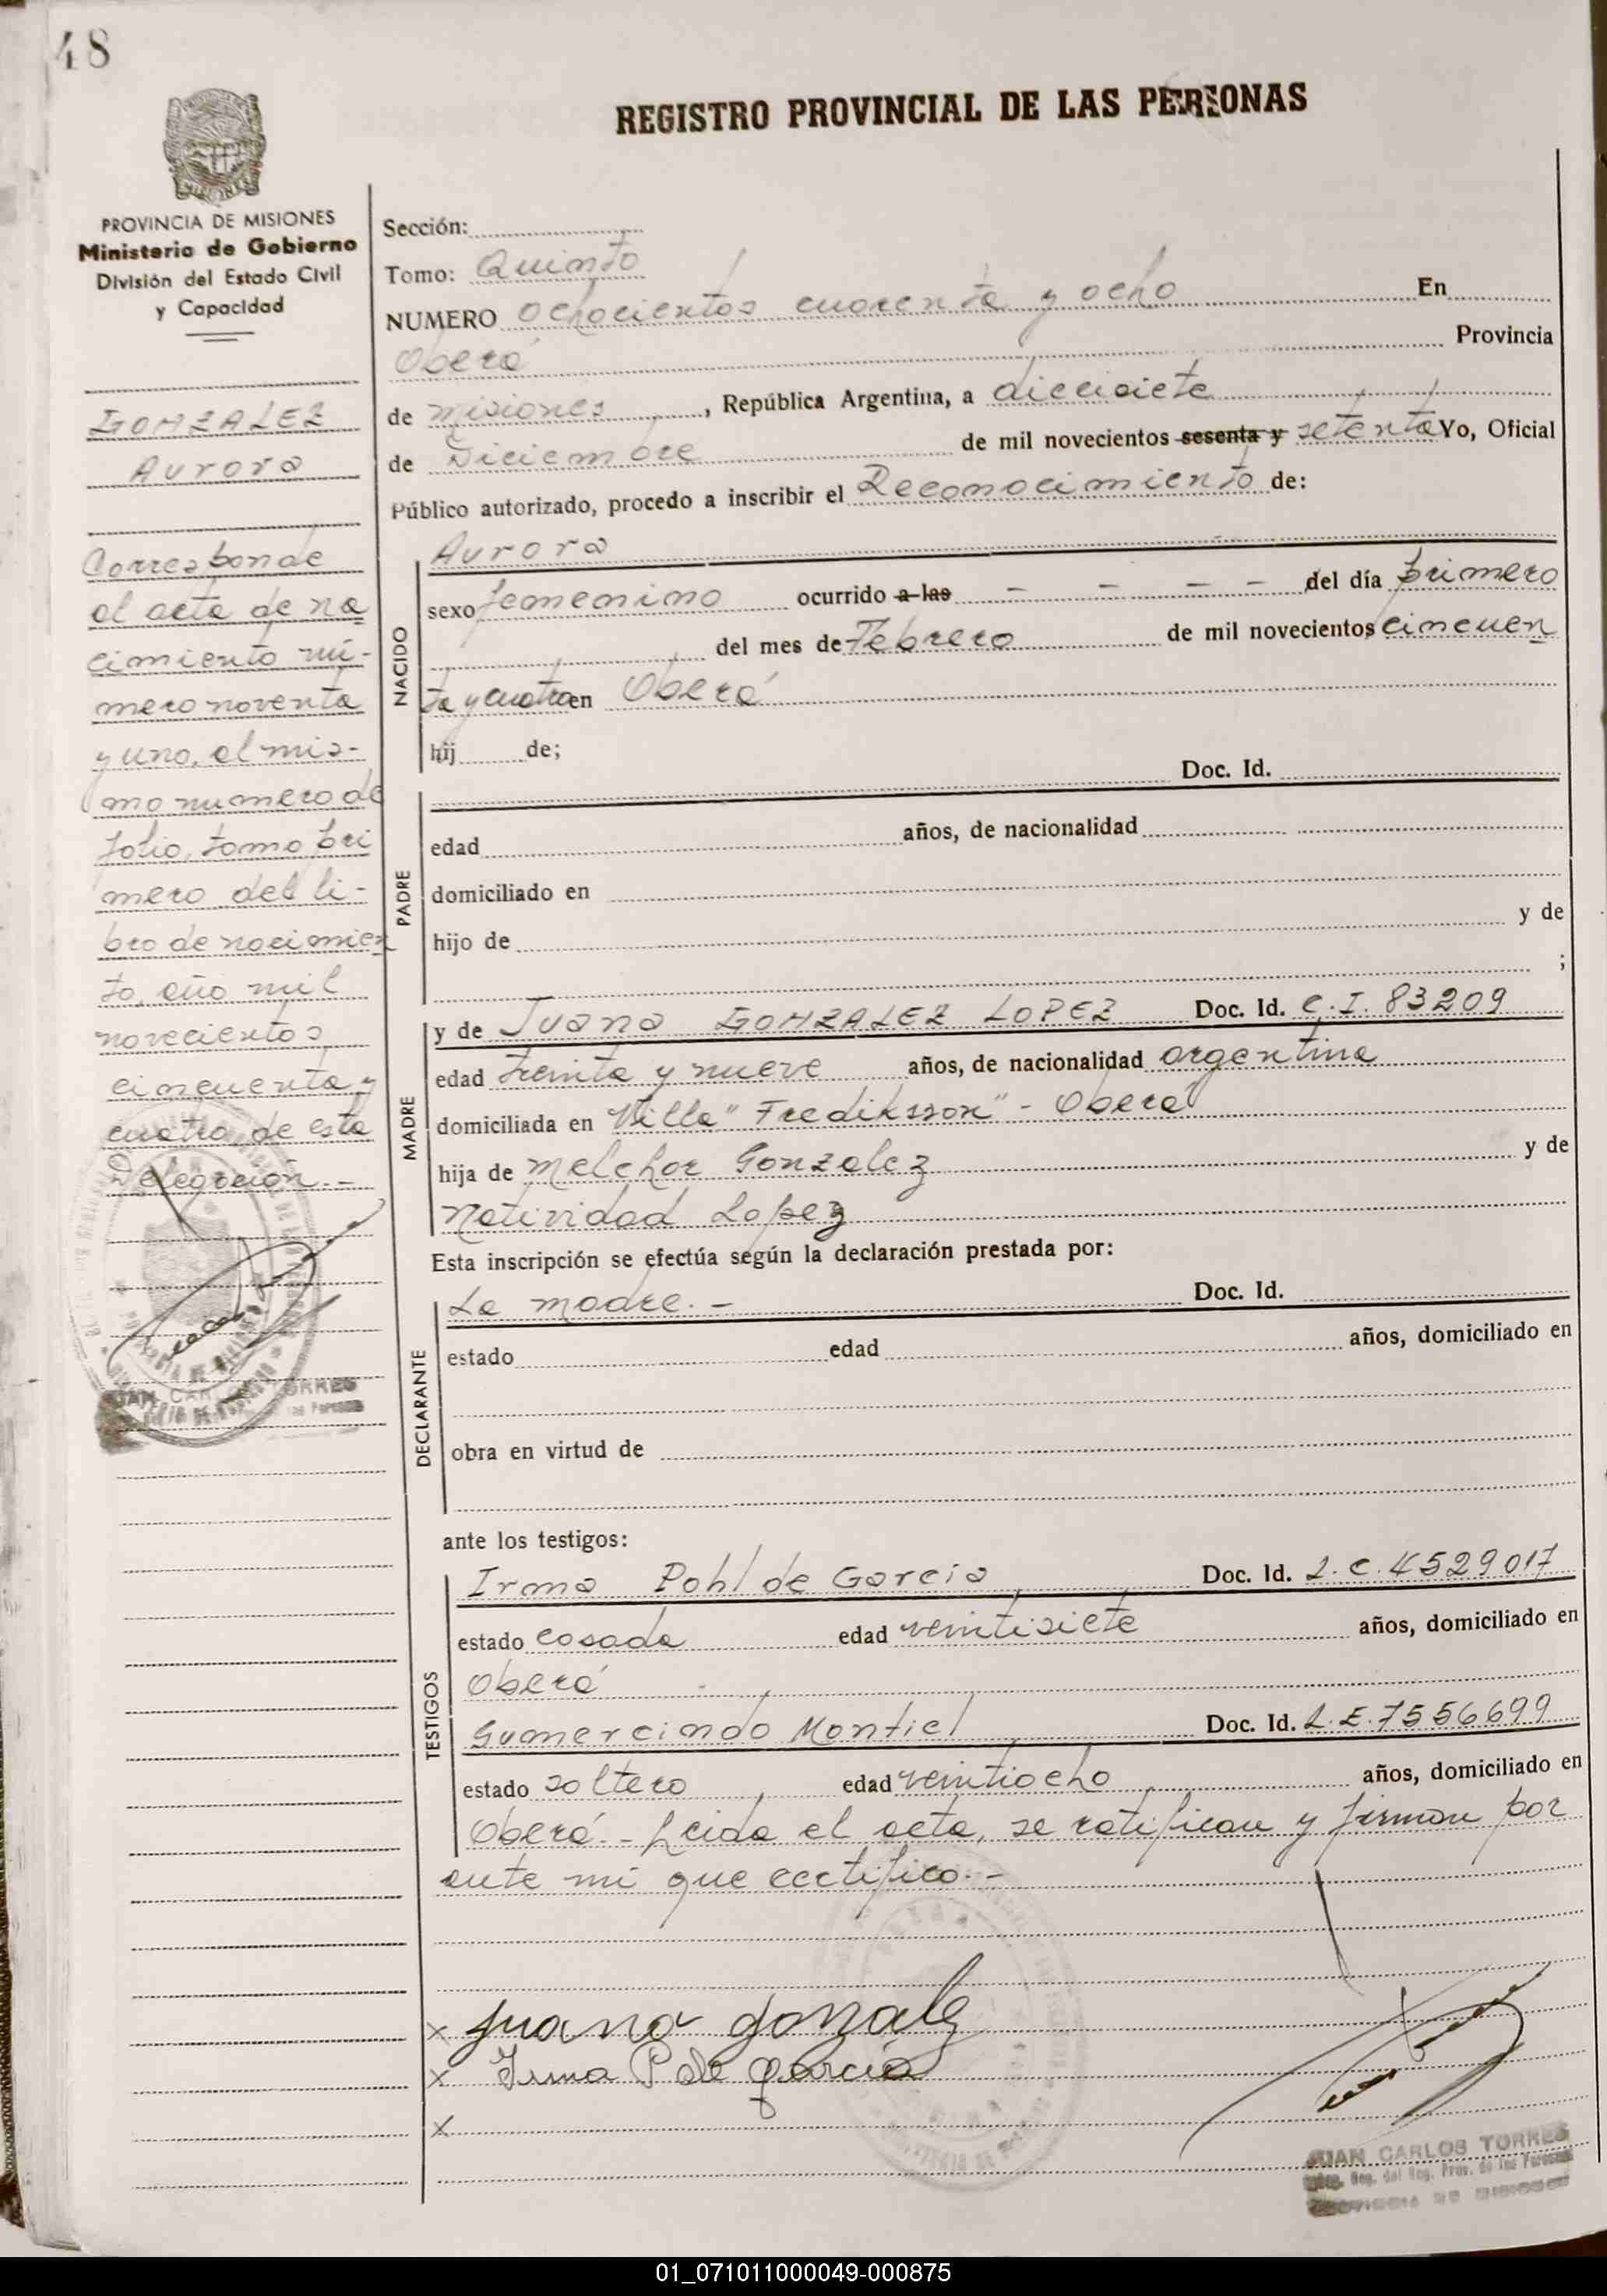 48
REGISTRO PROVINCIAL DE LAS PERSONAS
PROVINCIA DE MISIONES
Ministerio de Gobierno
División del Estado Civil
y Capacidad
GONZALEZ
Aurora
Corresponde
al acta de na
cimiento nú-
mero noventa
y uno, al mis-
mo numero de
folio, tomo pri
mero del li-
bro de nacimien
to, año mil
novecientos
cincuenta y
cuatro, de esta
Delegación.-
JUAN CARLOS TORRES
Sección:
Tomo: Quinto
NUMERO ochocientos cuarenta y ocho En
Oberá Provincia
de Misiones, República Argentina, a diecisiete
de Diciembre de mil novecientos sesenta y setenta Yo, Oficial
Público autorizado, procedo a inscribir el Reconocimiento de:
NACIDO
Aurora
sexo femenino ocurrido a las - - - - del día primero
del mes de Febrero de mil novecientos cincuen
ta y cuatro en Oberá
hij de;
PADRE
Doc. Id.
edad años, de nacionalidad
domiciliado en
hijo de y de
;
MADRE
y de Juana GONZALEZ LOPEZ Doc. Id. C.I. 83209
edad treinta y nueve años, de nacionalidad argentina
domiciliada en "Villa" Frediksson" - Oberá
hija de Melchor Gonzalez y de
Natividad Lopez
Esta inscripción se efectúa según la declaración prestada por:
DECLARANTE
La madre.- Doc. Id.
estado edad años, domiciliado en
obra en virtud de
ante los testigos:
TESTIGOS
Irma Pohl de Garcia, Doc. Id. L.C. 4529017
estado casada edad veintisiete años, domiciliado en
Oberá
Gumercindo Montiel Doc. Id. L.E. 7556699
estado soltero edad veintiocho años, domiciliado en
Oberá.- Leida el acta, se ratifican y firman por
ante mí que certifico.-
x Juana Gonzalez
x Irma P de Garcia
x
JUAN CARLOS TORRES
01_071011000049-000875